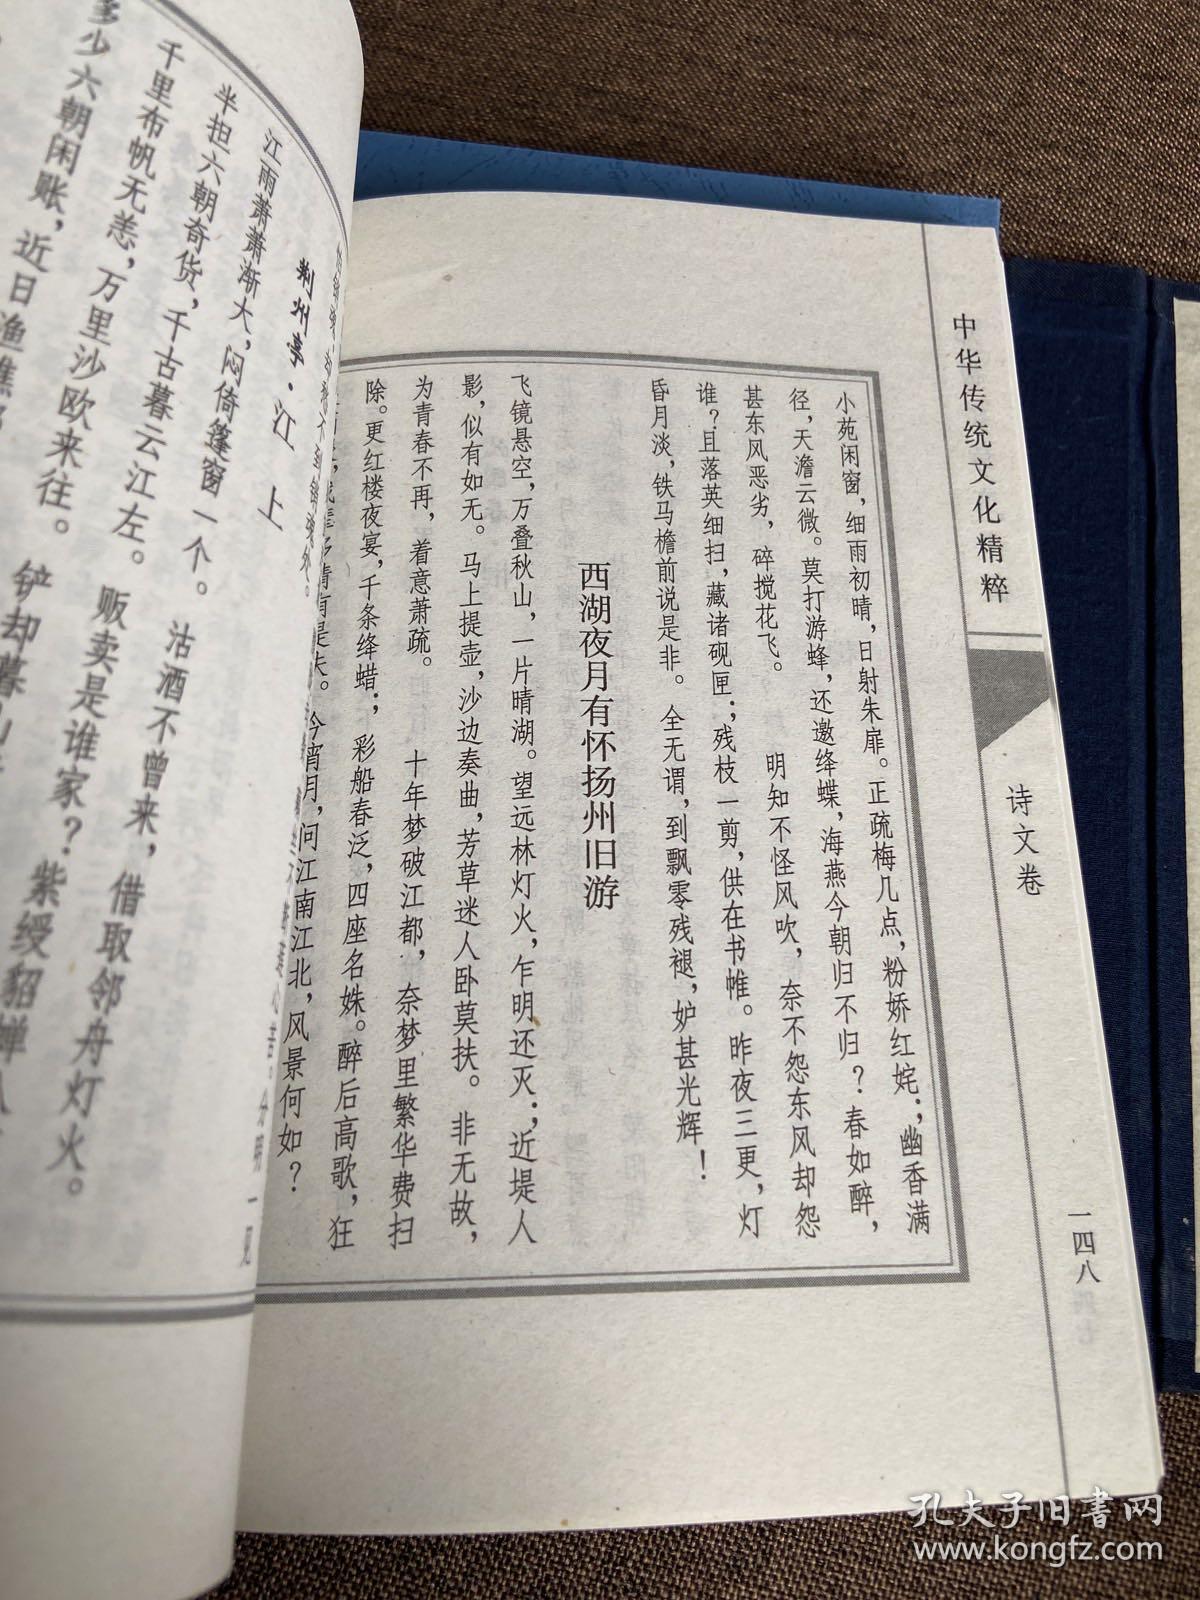 中华传统文化精粹
诗文卷
一四八
小苑闲窗，细雨初晴，日射朱扉。正疏梅几点，粉娇红姹；幽香满
径，天澹云微。莫打游蜂，还邀绛蝶，海燕今朝归不归？春如醉，
甚东风恶劣，碎搅花飞。 明知不怪风吹，奈不怨东风却怨
谁？且落英细扫，藏诸砚匣；残枝一剪，供在书帷。昨夜三更，灯
昏月淡，铁马檐前说是非。全无谓，到飘零残褪，妒甚光辉！
西湖夜月有怀扬州旧游
飞镜悬空，万叠秋山，一片晴湖。望远林灯火，乍明还灭；近堤人
影，似有如无。马上提壶，沙边奏曲，芳草迷人卧莫扶。非无故，
为青春不再，着意萧疏。 十年梦破江都，奈梦里繁华费扫
除。更红楼夜宴，千条绛蜡；彩船春泛，四座名姝。醉后高歌，狂
今宵月，问江南江北，风景何如？
荆州亭·江上
江雨萧萧渐大，闷倚篷窗一个。 沽酒不曾来，借取邻舟灯火。
半担六朝奇货，千古暮云江左。 贩卖是谁家？紫绶貂蝉
千里布帆无恙，万里沙欧来往。 铲却暮
多少六朝闲账，近日渔樵
孔夫子旧书网
www.kongfz.com